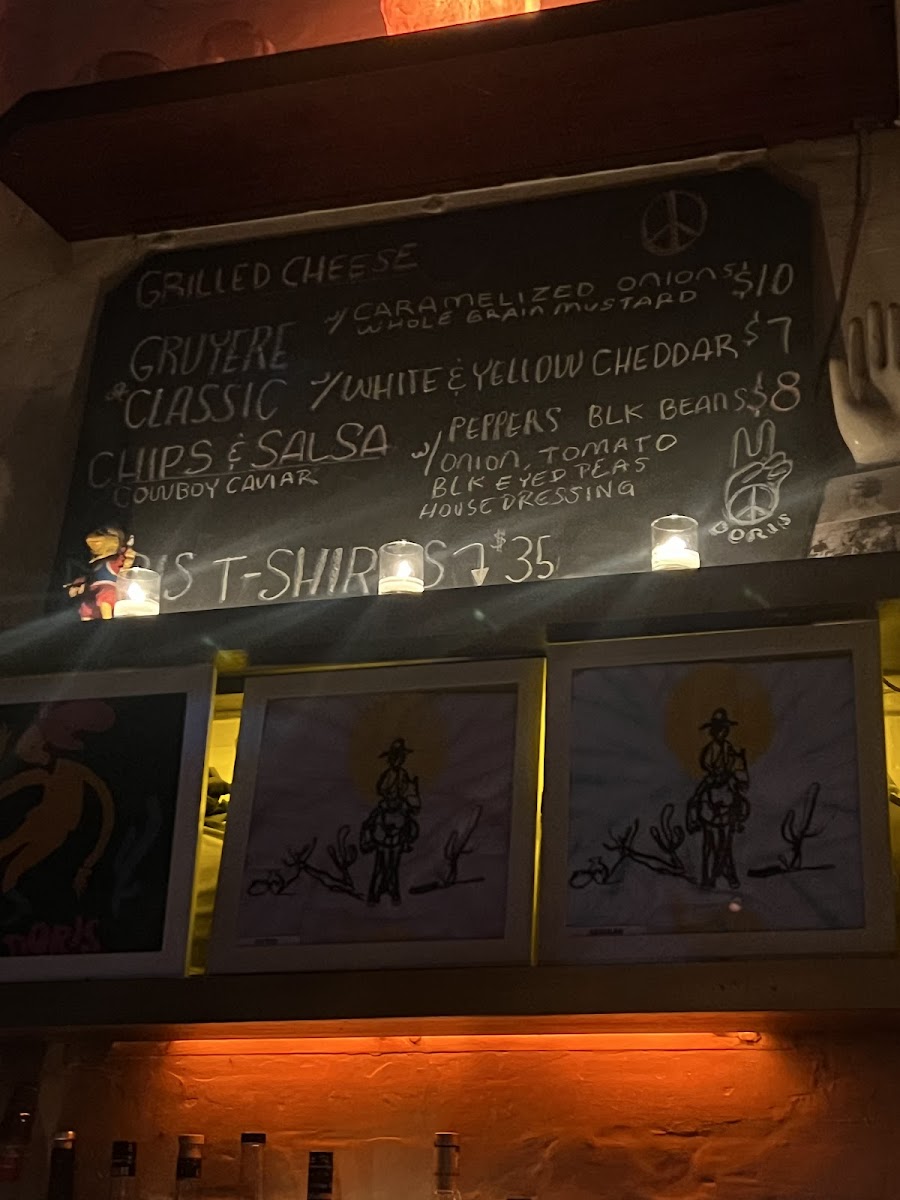 GRILLED CHEESE
GRUYERE W/ CARAMELIZED ONIONS $10
WHOLE GRAIN MUSTARD
CLASSIC W/ WHITE & YELLOW CHEDDAR $7
CHIPS & SALSA W/ PEPPERS BLK BEANS $8
COWBOY CAVIAR ONION, TOMATO
BLK EYED PEAS
HOUSE DRESSING
DORIS
T-SHIRTS $35
DORIS